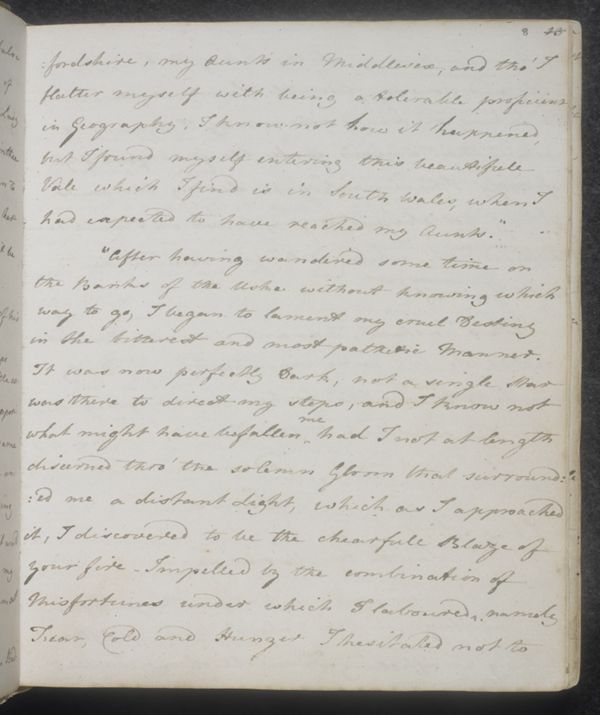 8
:fordshire, my Aunts in Middlesex, and tho' I
flatter myself with being a tolerable proficient
in Geography, I know not how it happened,
but I found myself entering this beautifull
Vale which I find is in South Wales, when I
had expected to have reached my Aunts."
"After having wandered some time on
the Banks of the Uske without knowing which
way to go, I began to lament my cruel Destiny
in the bitterest and most pathetic Manner.
It was now perfectly Dark, not a single Star
was there to direct my steps, and I know not
me
what might have befallen had I not at length
discerned thro' the solemn Gloom that surround:
:ed me a distant Light, which as I approached
it, I discovered to be the chearfull Blaze of
your fire. Impelled by the combination of
Misfortunes under which I laboured, namely
Fear, Cold and Hunger I hesitated not to